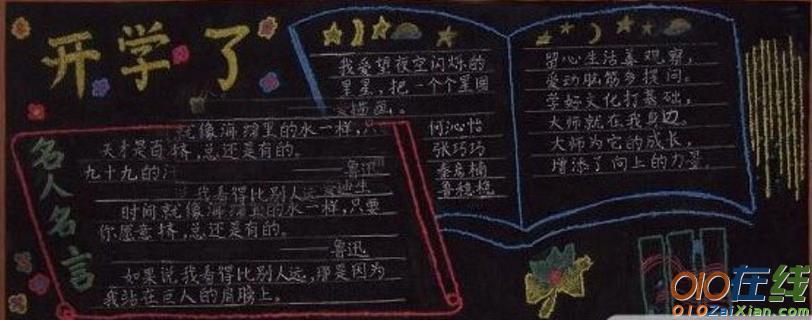 开学了
名人名言
就像海绵里的水一样，只
天才是百 挤，总还是有的。
九十九的汗 ——鲁迅
说我看得比别人远
时间就像海绵里的水一样，只要
你愿意挤，总还是有的。
——鲁迅
如果说我看得比别人远，那是因为
我站在巨人的肩膀上。
我爱望夜空闪烁的
星星，把一个个星图
描画。
何沁怡
张巧巧
鲁穗穗
留心生活善观察，
爱动脑筋多提问。
学好文化打基础，
大师就在我身边。
大师为它的成长，
增添了向上的力量。
010在线
010ZaiXian.com